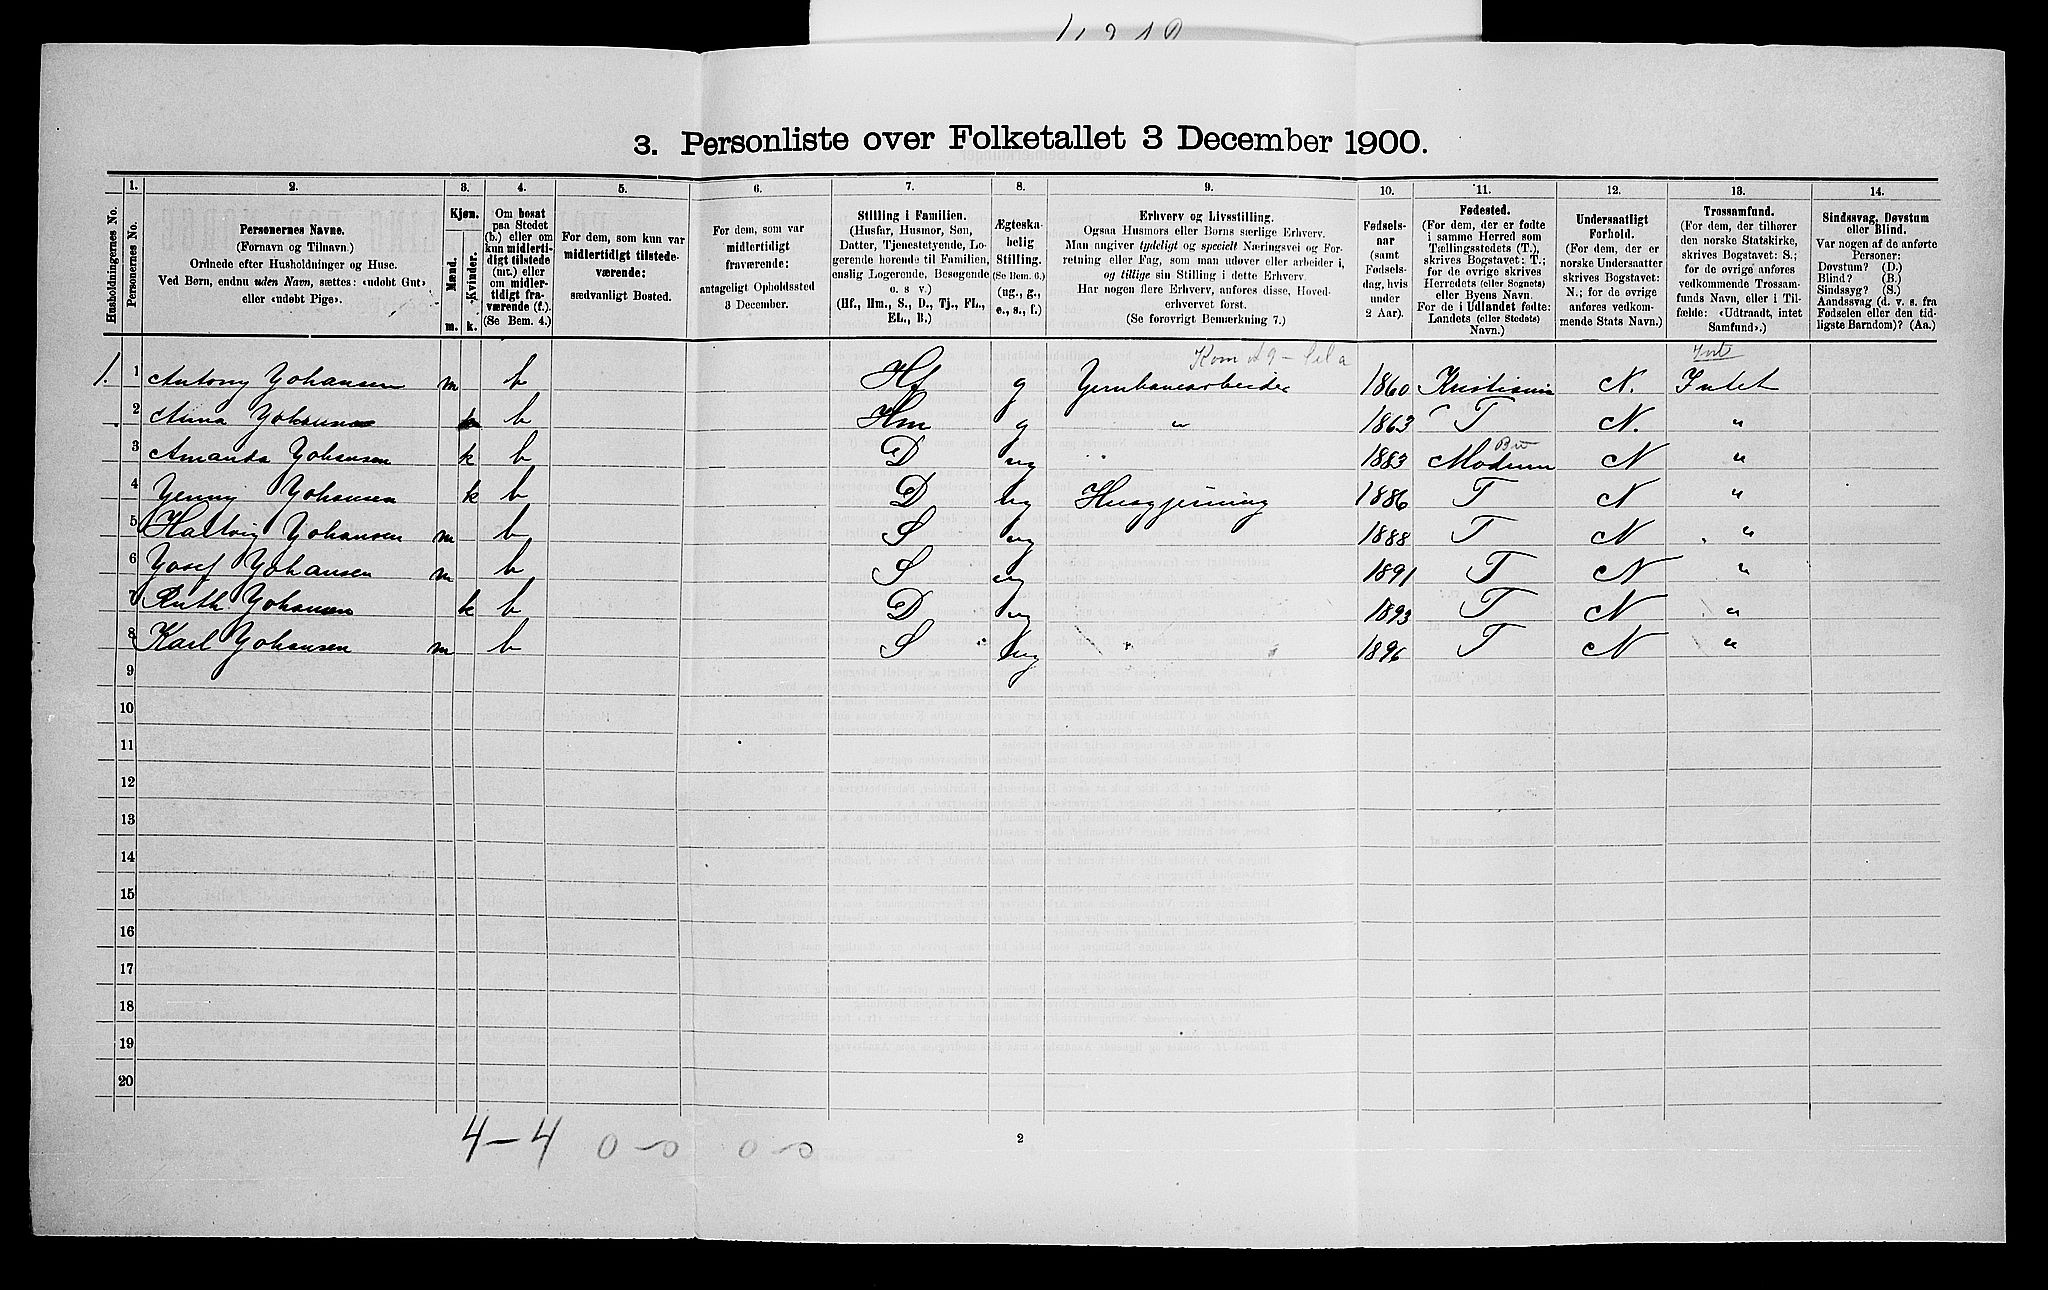 3. Personliste over Folketallet 3 December 1900.
Husholdningernes No.
1.
Personernes No.
2.
Personernes Navne.
(Fornavn og Tilnavn.)
Ordnede efter Husholdninger og Huse.
Ved Børn, endnu uden Navn, sættes: «udøbt Gut»
eller «udøbt Pige».
3.
Kjøn.
Mænd.
Kvinder.
m.
k.
4.
Om bosat
paa Stedet
(b.) eller om
kun midlerti-
digt tilstede
(mt.) eller
om midler-
tidigt fra-
værende (f.).
(Se Bem. 4.)
5.
For dem, som kun var
midlertidigt tilstede-
værende:
sædvanligt Bosted.
6.
For dem, som var
midlertidigt
fraværende:
antageligt Opholdssted
3 December.
7.
Stilling i Familien.
(Husfar, Husmor, Søn,
Datter, Tjenestetyende, Lo-
gerende hørende til Familien,
enslig Logerende, Besøgende
o. s v.)
(Hf., Hm., S., D., Tj., FL.,
EL., B.)
8.
Ægteska-
belig
Stilling.
(Se Bem. 6.)
(ug., g.,
e., s., f.)
9.
Erhverv og Livsstilling.
Ogsaa Husmors eller Børns særlige Erhverv.
Man angiver tydeligt og specielt Næringsvei og For-
retning eller Fag, som man udøver eller arbeider i,
og tillige sin Stilling i dette Erhverv.
Har nogen flere Erhverv, anføres disse, Hoved-
erhvervet først.
(Se forøvrigt Bemærkning 7.)
10.
Fødsels-
aar
(samt
Fødsels-
dag, hvis
under
2 Aar).
11.
Fødested.
(For dem, der er fødte
i samme Herred som
Tællingsstedets (T.),
skrives Bogstavet: T.;
for de øvrige skrives
Herredets (eller Sognets)
eller Byens Navn.
For de i Udlandet fødte:
Landets (eller Stedets)
Navn.)
12.
Undersaatligt
Forhold.
(For dem, der er
norske Undersaatter
skrives Bogstavet:
N.; for de øvrige
anføres vedkom-
mende Stats Navn.)
13.
Trossamfund.
(For dem, der tilhører
den norske Statskirke,
skrives Bogstavet: S.;
for de øvrige anføres
vedkommende Trossam-
funds Navn, eller i Til-
fælde: «Udtraadt, intet
Samfund».)
14.
Sindssvag, Døvstum
eller Blind.
Var nogen af de anførte
Personer:
Døvstum? (D.)
Blind? (B.)
Sindssyg? (S.)
Aandssvag (d. v. s. fra
Fødselen eller den tid-
ligste Barndom)? (Aa.)
1. 1 Antony Johansen m b Hf g Jernbanearbeider 1860 Kristiania N. Intet
2 Anna Johansen k b Hm g " 1863 T N. "
3 Amanda Johansen k b D ug " 1883 Modum N "
4 Jenny Johansen k b D ug Husgjerning 1886 T N "
5 Hartvig Johansen m b S ug 1888 T N "
6 Josef Johansen m b S ug 1891 T N "
7 Ruth Johansen k b D ug 1893 T N "
8 Karl Johansen m b S ug 1896 T N "
9
10
11
12
13
14
15
16
17
18
19
20
4–4 0–0 0–0
2